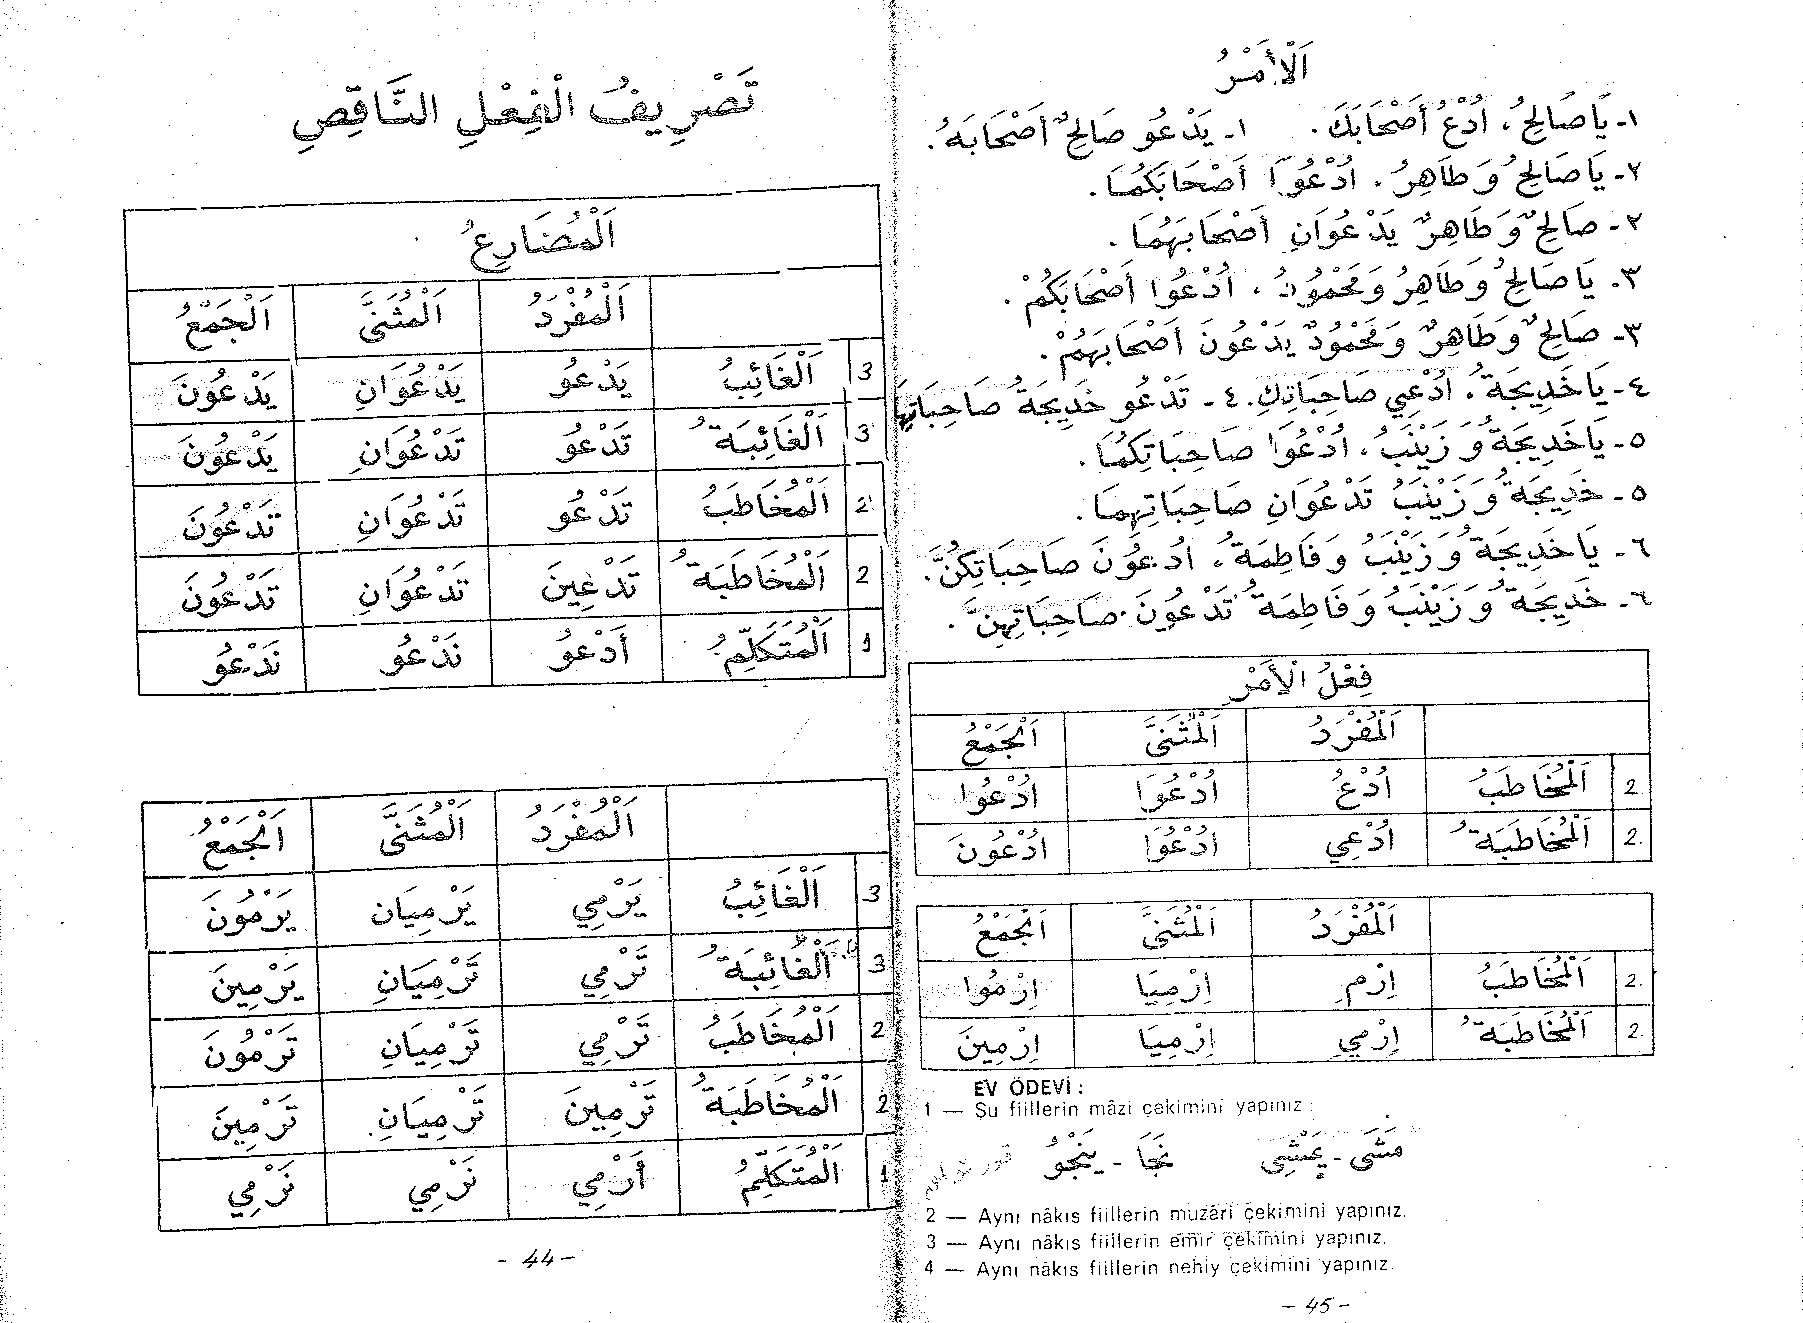 تَصْرِيفُ الْفِعْلِ النَّاقِصِ
اَلْمُضَارِعُ
اَلْمُفْرَدُ اَلْمُثَنَّى اَلْجَمْعُ
3 اَلْغَائِبُ يَدْعُو يَدْعُوَانِ يَدْعُونَ
3 اَلْغَائِبَةُ تَدْعُو تَدْعُوَانِ يَدْعُونَ
2 اَلْمُخَاطَبُ تَدْعُو تَدْعُوَانِ تَدْعُونَ
2 اَلْمُخَاطَبَةُ تَدْعِينَ تَدْعُوَانِ تَدْعُونَ
1 اَلْمُتَكَلِّمُ أَدْعُو نَدْعُو نَدْعُو
اَلْمُفْرَدُ اَلْمُثَنَّى اَلْجَمْعُ
3 اَلْغَائِبُ يَرْمِي يَرْمِيَان يَرْمُونَ
3 اَلْغَائِبَةُ تَرْمِي تَرْمِيَانِ يَرْمِينَ
2 اَلْمُخَاطَبُ تَرْمِي تَرْمِيَانِ تَرْمُونَ
2 اَلْمُخَاطَبَةُ تَرْمِينَ تَرْمِيَانِ تَرْمِينَ
1 اَلْمُتَكَلِّمُ أَرْمِي نَرْمِي نَرْمِي
- 44 -
اَلْأَمْرُ
١- يَا صَالِحُ، اُدْعُ أَصْحَابَكَ. ١- يَدْعُو صَالِحٌ أَصْحَابَهُ.
٢- يَا صَالِحُ وَ طَاهِرُ، اُدْعُوَا أَصْحَابَكُمَا.
٢- صَالِحٌ وَ طَاهِرٌ يَدْعُوَانِ أَصْحَابَهُمَا.
٣- يَا صَالِحُ وَ طَاهِرُ وَ مَحْمُودُ، اُدْعُوا أَصْحَابَكُمْ.
٣- صَالِحٌ وَ طَاهِرٌ وَ مَحْمُودٌ يَدْعُونَ أَصْحَابَهُمْ.
٤- يَا خَدِيجَةُ، اُدْعِي صَاحِبَاتِكِ. ٤- تَدْعُو خَدِيجَةُ صَاحِبَاتِهَا
٥- يَا خَدِيجَةُ وَ زَيْنَبُ، اُدْعُوَا صَاحِبَاتِكُمَا.
٥- خَدِيجَةُ وَ زَيْنَبُ تَدْعُوَانِ صَاحِبَاتِهِمَا.
٦- يَا خَدِيجَةُ وَ زَيْنَبُ وَ فَاطِمَةُ، اُدْعُونَ صَاحِبَاتِكُنَّ.
٦- خَدِيجَةُ وَ زَيْنَبُ وَ فَاطِمَةُ تَدْعُونَ صَاحِبَاتِهِنَّ.
فِعْلُ الْأَمْرِ
اَلْمُفْرَدُ اَلْمُثَنَّى اَلْجَمْعُ
2 اَلْمُخَاطَبُ اُدْعُ اُدْعُوَا اُدْعُوا
2. اَلْمُخَاطَبَةُ اُدْعِي اُدْعُوَا اُدْعُونَ
اَلْمُفْرَدُ اَلْمُثَنَّى اَلْجَمْعُ
2. اَلْمُخَاطَبُ اِرْمِ اِرْمِيَا اِرْمُوا
2. اَلْمُخَاطَبَةُ اِرْمِي اِرْمِيَا اِرْمِينَ
EV ÖDEVİ :
1 — Şu fiillerin mâzi çekimini yapınız :
مَشَى - يَمْشِي نَجَا - يَنْجُو
2 — Aynı nâkıs fiillerin muzâri çekimini yapınız.
3 — Aynı nâkıs fiillerin emir çekimini yapınız.
4 — Aynı nâkıs fiillerin nehiy çekimini yapınız.
- 45 -